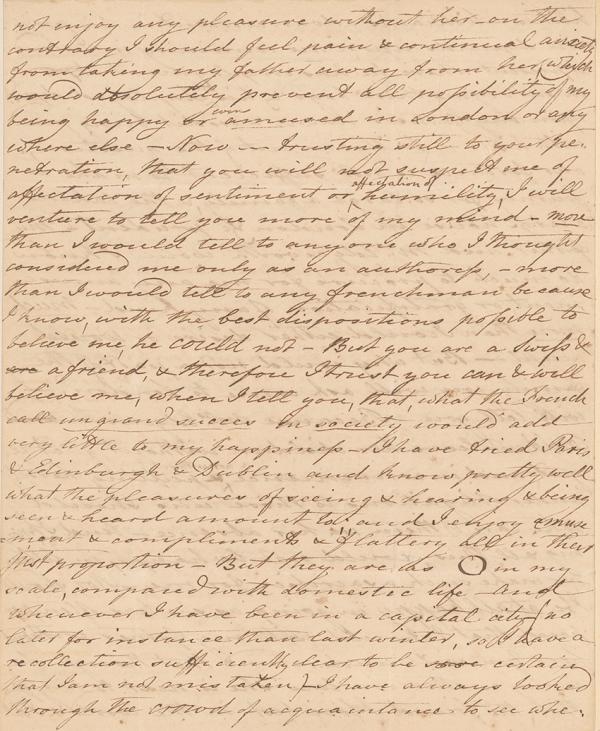 not enjoy any pleasure without her - on the
contrary I should feel pain & continual anxiety
from taking my father away from her, which
would absolutely prevent all possibility of my
being happy or even amused in London or any
where else - Now - trusting still to your pe-
netration, that you will not suspect me of
affectation of sentiment or affectation of humility, I will
venture to tell you more of my mind - more
than I would tell to any one who I thought
considered me only as an authoress, - more
than I would tell to any frenchman because
I know, with the best dispositions possible to
believe me, he could not - But you are a Swiss &
are a friend, & therefore I trust you can & will
believe me, when I tell you, that, what the French
call un grand succes in society would add
very little to my happiness - I have tried Paris
& Edinburgh & Dublin and know pretty well
what the pleasures of seeing & hearing & being
seen & heard amount to; and I enjoy amuse
ment & compliments & flattery all in their
just proportion - But they are as O in my
scale, compared with domestic life - And
whenever I have been in a capital city (no
later for instance than last winter, so I have a
recollection sufficiently clear to be certain
that I am not mistaken) - I have always looked
through the crowd of acquaintance to see whe-